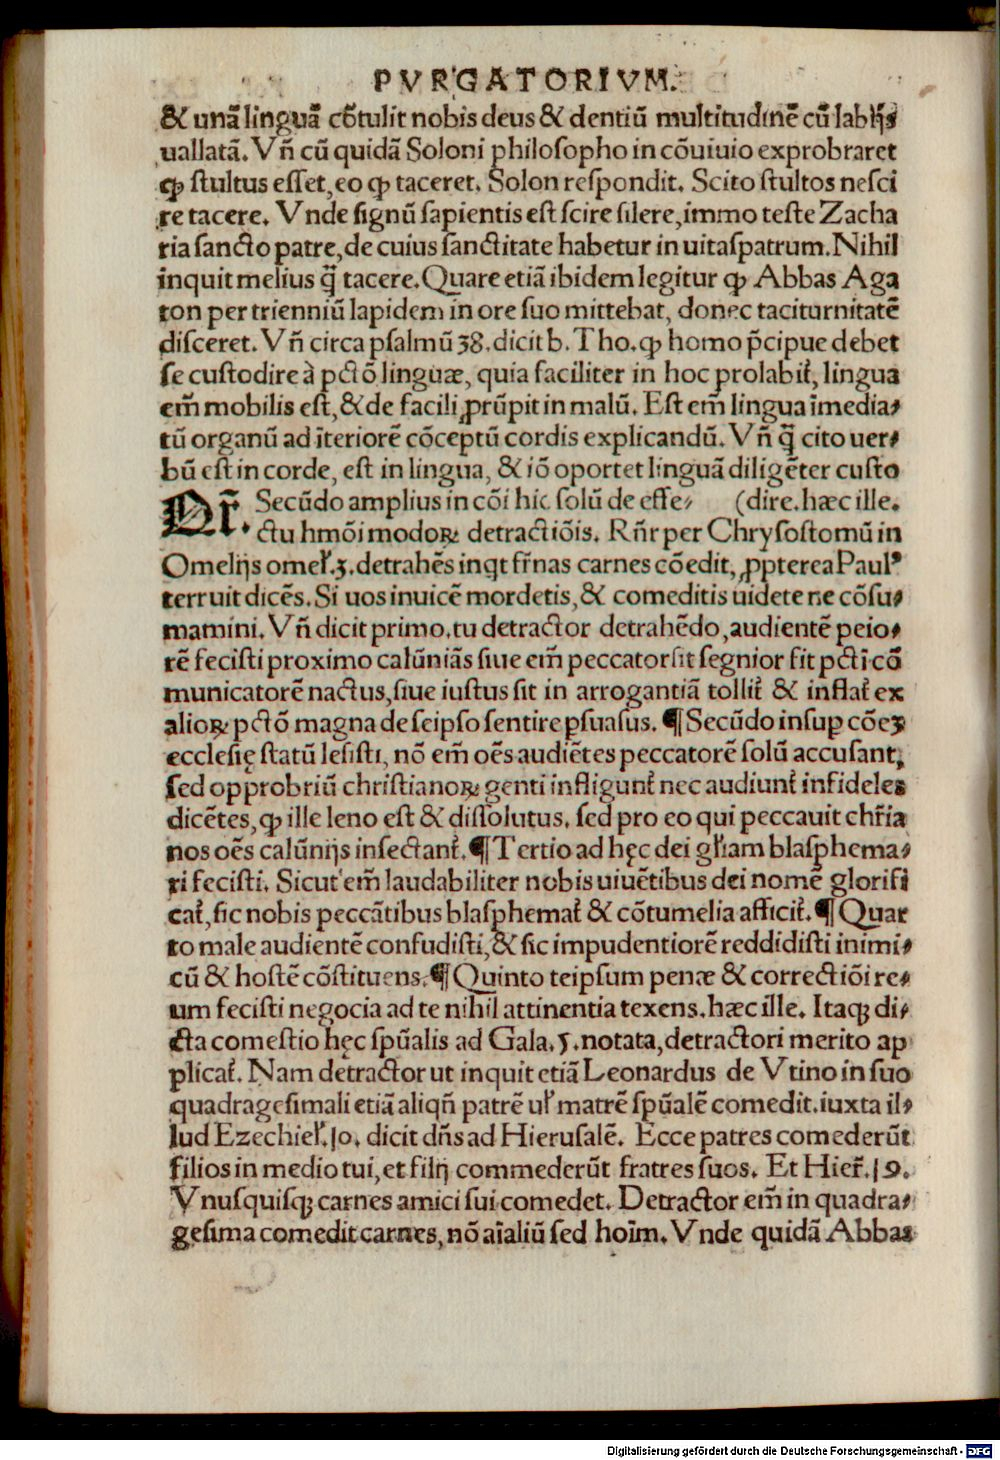 PVRGATORIVM.
& unā linguā cōtulit nobis deus & dentiū multitudinē cū labijs
uallatā. Vñ cū quidā Soloni philosopho in cōuiuio exprobraret
ꝙ stultus esset, eo ꝙ taceret. Solon respondit. Scito stultos nesci
re tacere. Vnde signū sapientis est scire silere, immo teste Zacha
ria sancto patre, de cuius sanctitate habetur in uitaspatrum. Nihil
inquit melius q̄̄ tacere. Quare etiā ibidem legitur ꝙ Abbas Aga
ton per trienniū lapidem in ore suo mittebat, donec taciturnitatē
disceret. Vñ circa psalmū 38. dicit b. Tho. ꝙ homo p̄cipue debet
se custodire à pctō linguæ, quia faciliter in hoc prolabit᷑, lingua
em̄ mobilis est, & de facili ꝓrūpit in malū. Est em̄ lingua īmedia⸗
tū organū ad īteriorē cōceptū cordis explicandū. Vñ q̄̄ cito uer⸗
bū est in corde, est in lingua, & iō oportet linguā diligēter custo
Dr̄. Secūdo amplius in cōi hic solū de effe⸗ (dire. hæc ille.
ctu hmōi modoꝝ detractiōis. Rñr per Chrysostomū in
Omelijs omel᷑. 3. detrahēs inqt fr̄nas carnes cōedit, ꝓpterea Paulꝰ
terruit dicēs. Si uos inuicē mordetis, & comeditis uidete ne cōsu⸗
mamini. Vñ dicit primo. tu detractor detrahēdo, audientē peio⸗
rē fecisti proximo calūniās siue em̄ peccator sit segnior fit pcti cō
municatorē nactus, siue iustus sit in arrogantiā tollit᷑ & inflat᷑ ex
alioꝝ pctō magna de seipso sentire ꝑsuasus. ¶ Secūdo insuꝑ cōeꝫ
ecclesię statū lesisti, nō em̄ oēs audiētes peccatorē solū accusant,
sed opprobriū christianoꝝ genti infligunt᷑ nec audiunt᷑ infideles
dicētes, ꝙ ille leno est & dissolutus. sed pro eo qui peccauit chr̄ia
nos oēs calūnijs insectant᷑. ¶ Tertio ad hęc dei gl᷑iam blasphema⸗
ri fecisti. Sicut em̄ laudabiliter nobis uiuētibus dei nomē glorifi
cat᷑, sic nobis peccātibus blasphemat᷑ & cōtumelia afficit᷑. ¶ Quar
to male audientē confudisti, & sic impudentiorē reddidisti inimi⸗
cū & hostē cōstituens. ¶ Quinto teipsum penæ & correctiōi re⸗
um fecisti negocia ad te nihil attinentia texens. hæc ille. Itaqꝫ di⸗
cta comestio hęc spūalis ad Gala. 5. notata, detractori merito ap
plicat᷑. Nam detractor ut inquit etiā Leonardus de Vtino in suo
quadragesimali etiā aliqñ patrē ul᷑ matrē spūalē comedit. iuxta il⸗
lud Ezechiel᷑. 10. dicit dñs ad Hierusalē. Ecce patres comederūt
filios in medio tui, et filij commederūt fratres suos. Et Hier᷑. 19.
Vnusquisqꝫ carnes amici sui comedet. Detractor em̄ in quadra⸗
gesima comedit carnes, nō aīaliū sed hoīm. Vnde quidā Abbas
Digitalisierung gefördert durch die Deutsche Forschungsgemeinschaft - DFG